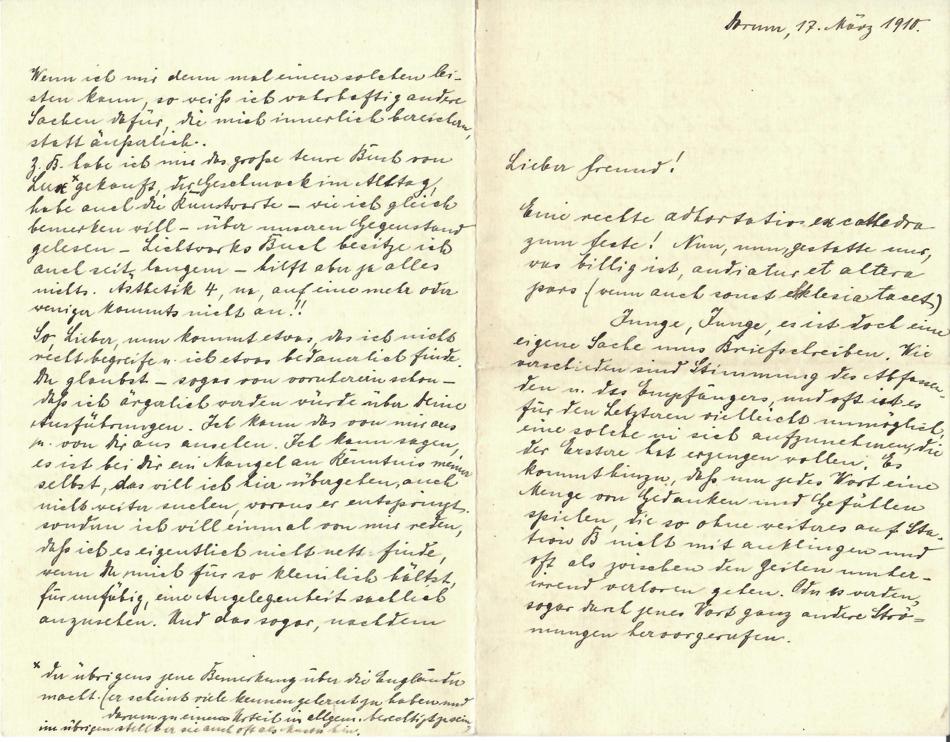 Wenn ich mir denn mal einen solchen lei-
sten kann, so weiß ich wahrhaftig andere
Sachen dafür, die mich innerlich bereichern,
statt äußerlich.
z. B. habe ich mir das große teure Buch von
Lux* gekauft, der Geschmack im Alltag,
habe auch die Kunstwarte – wie ich gleich
bemerken will – über unseren Gegenstand
gelesen – Lichtwarks Buch besitze ich
auch seit langem – hilft aber ja alles
nichts. Ästhetik 4, na, auf eine mehr oder
weniger kommts nicht an!!
So, Lieber, nun kommt etwas, das ich nicht
recht begreife u. ich etwas bedauerlich finde.
Du glaubst – sogar von vornherein schon –
daß ich ärgerlich werden würde über Deine
Ausführungen. Ich kann das von mir aus
u. von Dir aus ansehen. Ich kann sagen,
es ist bei Dir ein Mangel an Kenntnis meiner
selbst, das will ich hier übergehen, auch
nicht weiter suchen, woraus er entspringt,
sondern ich will einmal von mir reden,
daß ich es eigentlich nicht nett finde,
wenn Du mich für so kleinlich hältst,
für unfähig, eine Angelegenheit sachlich
anzusehen. Und das sogar, nachdem
* der übrigens jene Bemerkung über die Engländer
macht. (er scheint viele kennen gelernt zu haben und
darum zu einem Urteil im allgem. berechtigt zu sein
im übrigen stellt er sie auch oft als Muster hin.
Dorum, 17. März 1910.
Lieber Freund!
Eine rechte adhortatio ex cathedra
zum Feste! Nun, nun, gestatte mir,
was billig ist, audiatur et altera
pars (wenn auch sonst ekklesia tacet)
Junge, Junge, es ist doch eine
eigene Sache ums Briefschreiben. Wie
verschieden sind Stimmung des Abfassen-
den u. des Empfängers, und oft ist es
für den Letzteren vielleicht unmöglich,
eine solche in sich aufzunehmen, die
der Erstere hat erzeugen wollen. Es
kommt hinzu, daß um jedes Wort eine
Menge von Gedanken und Gefühlen
spielen, die so ohne weiteres auf Sta-
tion B nicht mit anklingen und
oft als zwischen den Zeilen umher-
irrend verloren gehen. Oder es werden,
sogar durch jenes Wort ganz andere Strö-
mungen hervorgerufen.